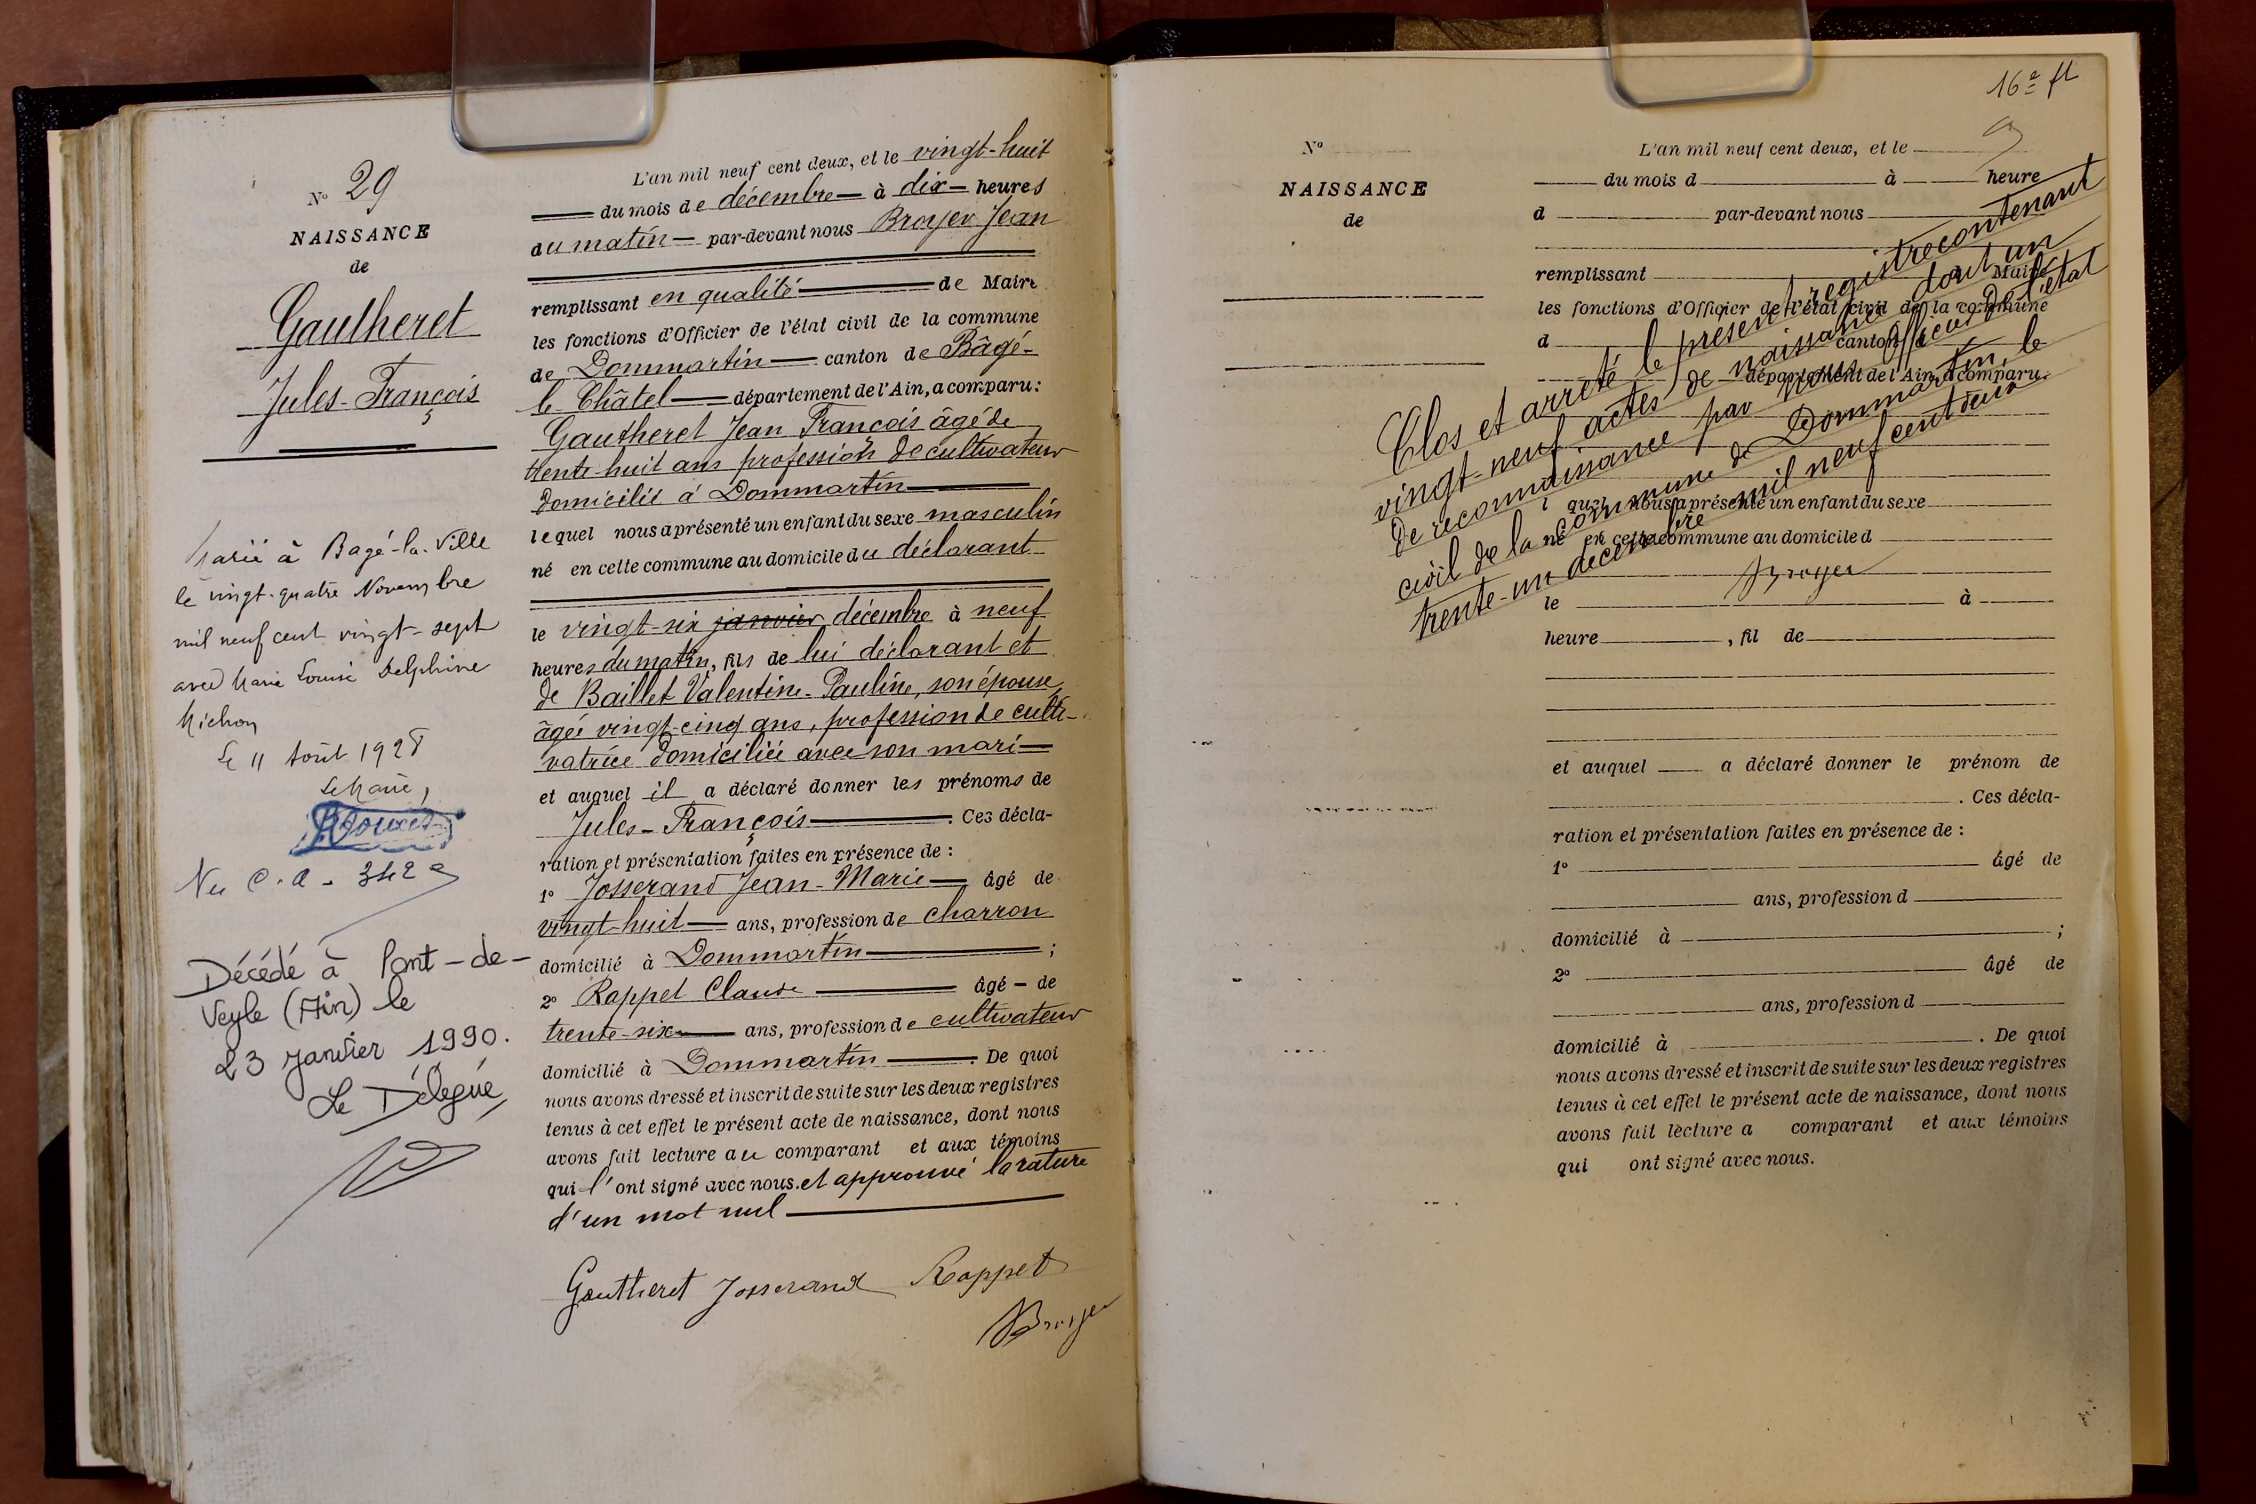 N° 29
NAISSANCE
de
Gautheret
Jules-François
Marié à Bagé-la-Ville
le vingt-quatre Novembre
mil neuf cent vingt-sept
avec Marie Louise Delphine
Michon
Le 11 Août 1928
Le Maire,
Vu C.A. 342
Décédé à Pont-de-
Veyle (Ain) le
23 janvier 1990.
Le Délégué,
L'an mil neuf cent deux, et le vingt-huit
du mois de décembre à dix heures
du matin par-devant nous Broyer Jean
remplissant en qualité de Maire
les fonctions d'Officier de l'état civil de la commune
de Dommartin canton de Bâgé-
le Châtel département de l'Ain, a comparu:
Gautheret Jean François âgé de
trente-huit ans profession de cultivateur
domicilié à Dommartin
lequel nous a présenté un enfant du sexe masculin
né en cette commune au domicile du déclarant
le vingt-six janvier décembre à neuf
heures du matin, fils de lui déclarant et
de Baillet Valentine-Pauline, son épouse,
âgée vingt-cinq ans, profession de culti-
vatrice domiciliée avec son mari
et auquel il a déclaré donner les prénoms de
Jules-François. Ces décla-
ration et présentation faites en présence de :
1° Josserand Jean-Marie âgé de
vingt-huit ans, profession de charron
domicilié à Dommartin ;
2° Rappet Claude âgé - de
trente-six ans, profession de cultivateur
domicilié à Dommartin. De quoi
nous avons dressé et inscrit de suite sur les deux registres
tenus à cet effet le présent acte de naissance, dont nous
avons fait lecture au comparant et aux témoins
qui l'ont signé avec nous. et approuvé la rature
d'un mot nul
Gautheret Josserand Rappet
Broyer
16e ft
N°
NAISSANCE
de
L'an mil neuf cent deux, et le
du mois d à heure
d par-devant nous
remplissant Maire
les fonctions d'Officier de l'état civil de la commune
d canton d
département de l'Ain, a comparu:
l quel nous a présenté un enfant du sexe
né en cette commune au domicile d
le à
heure , fil de
et auquel a déclaré donner le prénom de
. Ces décla-
ration et présentation faites en présence de :
1° âgé de
ans, profession d
domicilié à ;
2° âgé de
ans, profession d
domicilié à . De quoi
nous avons dressé et inscrit de suite sur les deux registres
tenus à cet effet le présent acte de naissance, dont nous
avons fait lecture a comparant et aux témoins
qui ont signé avec nous.
Clos et arreté le présent registre contenant
vingt-neuf actes de naissance dont un
de reconnaissance par nous officier de l'état
civil de la commune de Dommartin, le
trente-un décembre mil neuf cent deux
Broyer